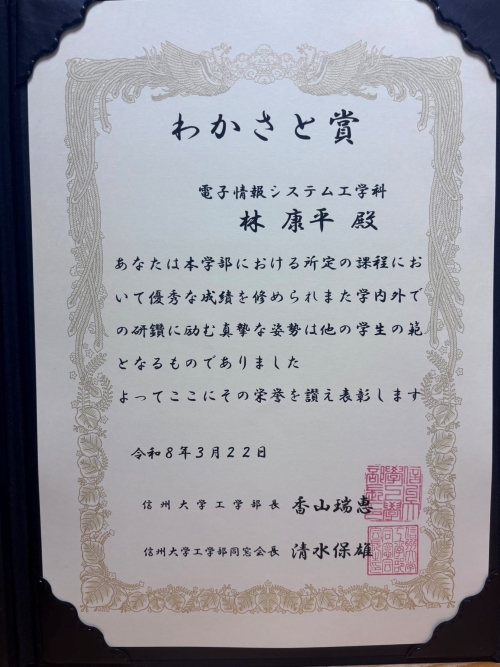 わかさと賞
電子情報システム工学科
林 康平 殿
あなたは本学部における所定の課程にお
いて優秀な成績を修められまた学内外で
の研鑽に励む真摯な姿勢は他の学生の範
となるものでありました
よってここにその栄誉を讃え表彰します
令和8年3月22日
信州大学工学部長 香山瑞恵
信州大学工学部同窓会長 清水保雄